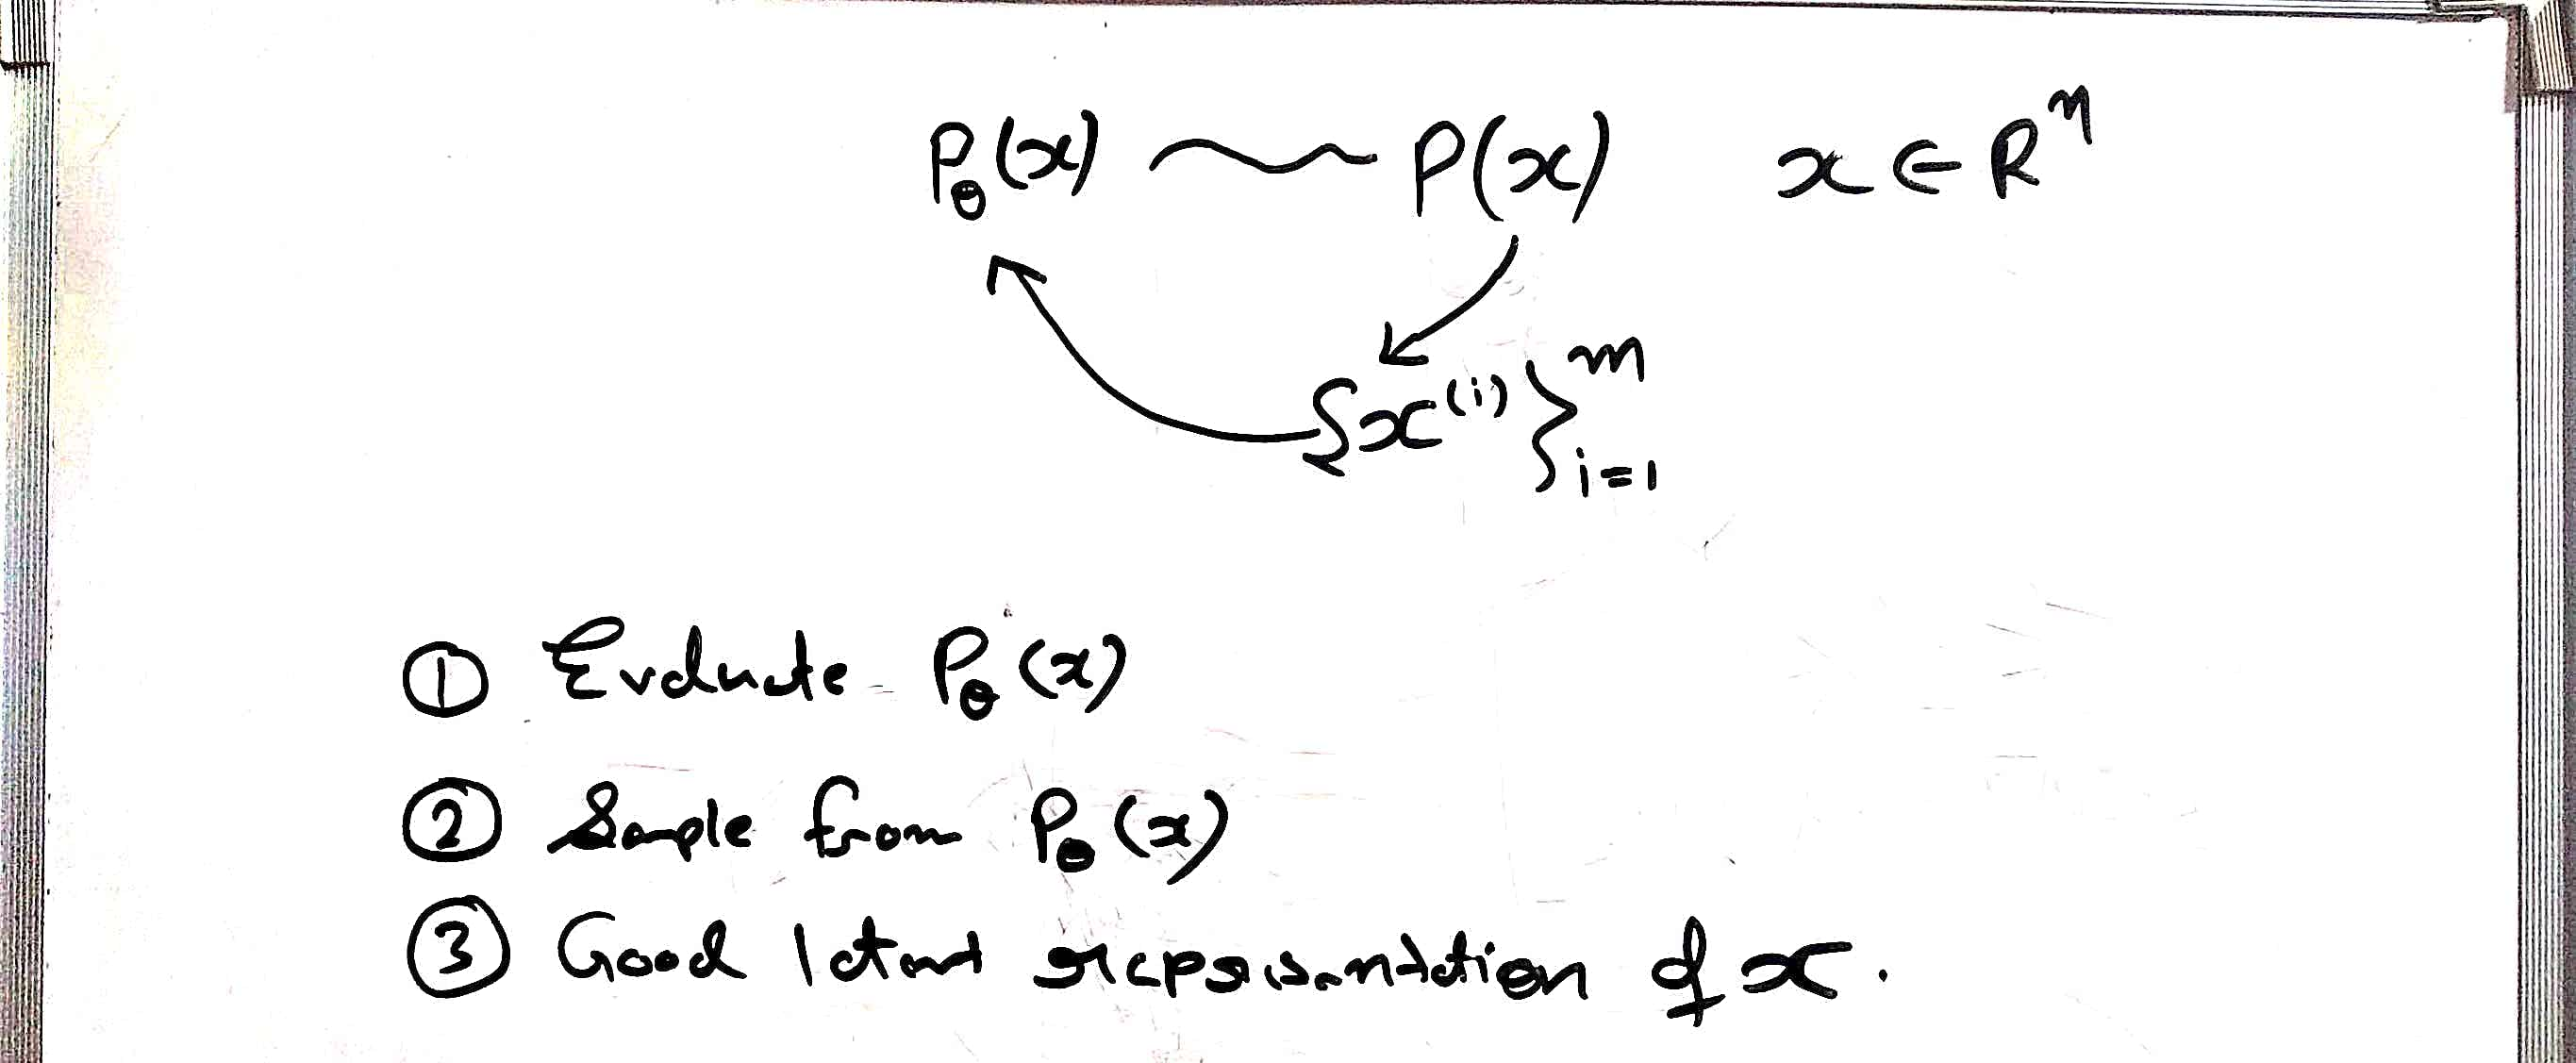 P_θ(x) ~ P(x) x ∈ R^n
{x^(i)}_{i=1}^m
① Evaluate P_θ(x)
② Sample from P_θ(x)
③ Good latent representation of x.